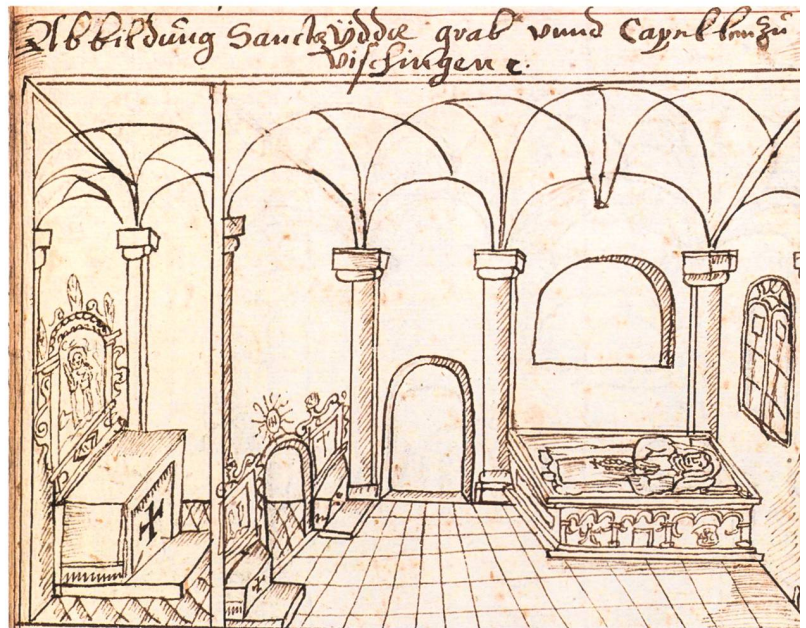 Abbildung Sanct Yddæ grab vnnd Capellen zu
Vischingen ꝛ.